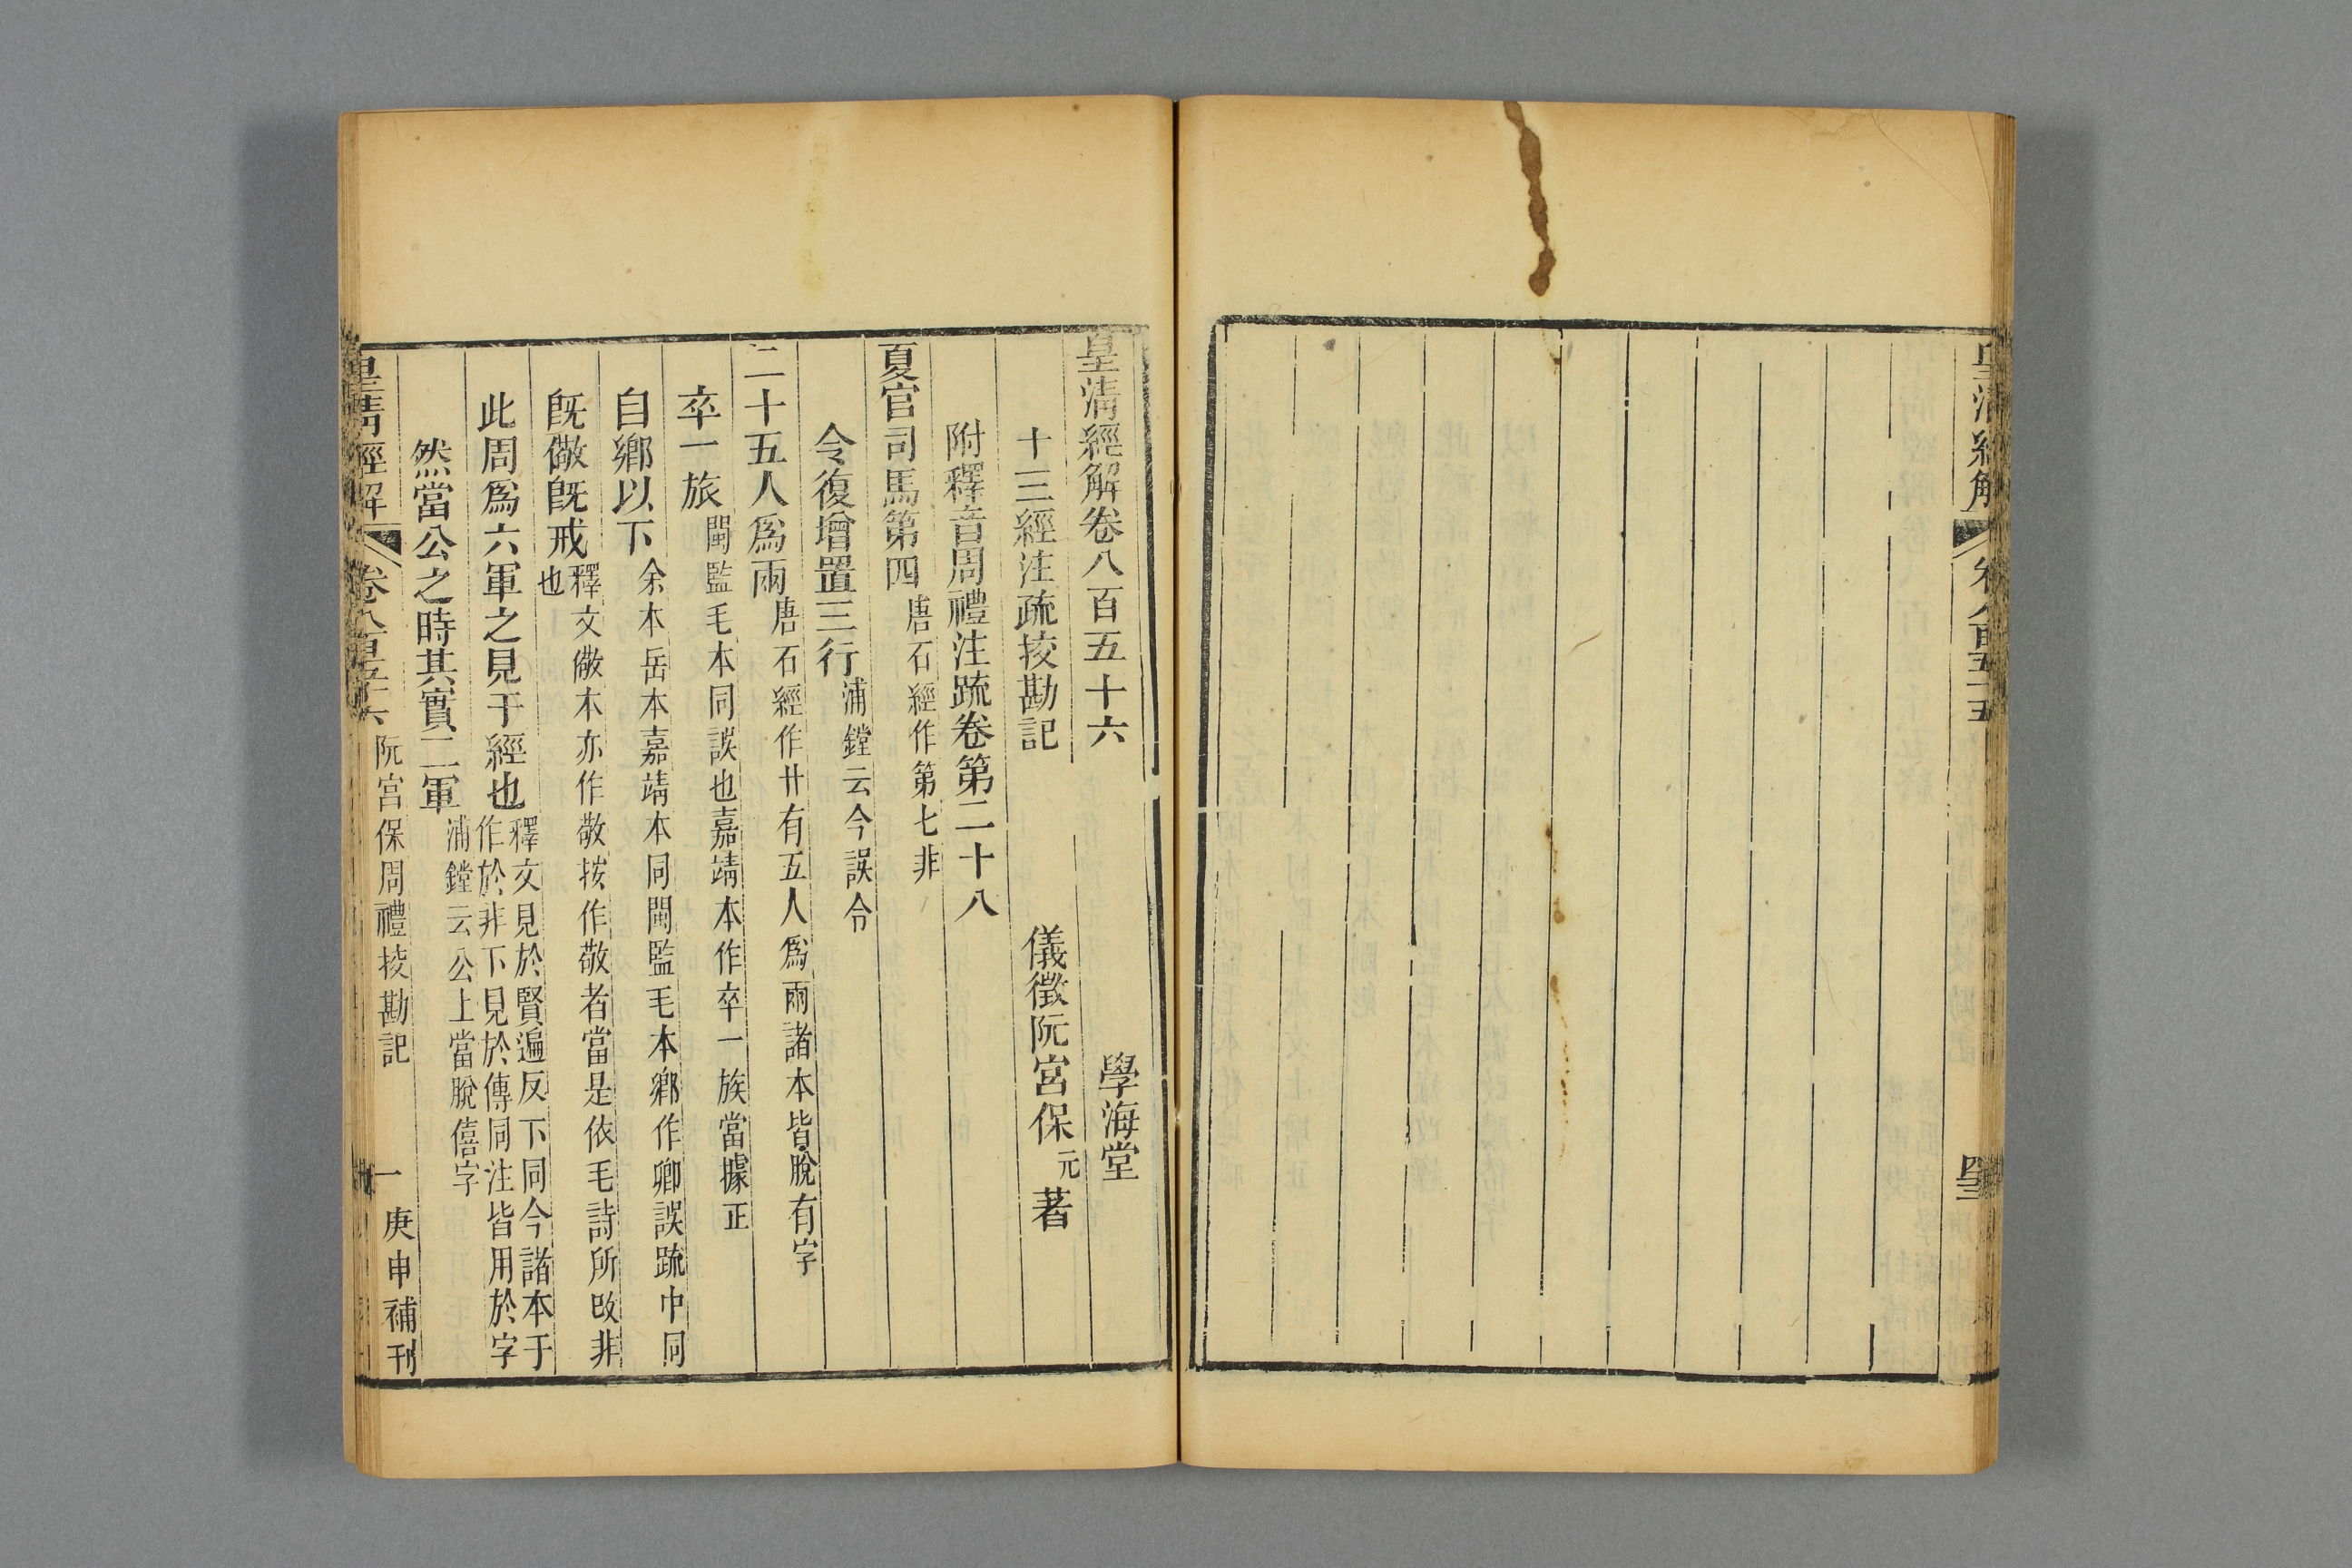 皇清經解
卷八百五十五
皇清經解卷八百五十六
學海堂
十三經注疏挍勘記
儀徵阮宮保元著
附釋音周禮注䟽卷第二十八
夏官司馬第四唐石經作第七非
令復增置三行浦鏜云今誤令
二十五人爲兩唐石經作廿有五人爲兩諸本皆脫有字
卒一旅閩監毛本同誤也嘉靖本作卒一族當據正
自鄉以下余本岳本嘉靖本同閩監毛本鄉作卿誤䟽中同
旣儆旣戒釋文儆本亦作敬按作敬者當是依毛詩所改非
也
此周爲六軍之見于經也釋文見於賢遍反下同今諸本于
作於非下見於傳同注皆用於字
然當公之時其實二軍浦鏜云公上當脫僖字
皇清經解
卷八百五十六
阮宮保周禮挍勘記
一
庚申補刊